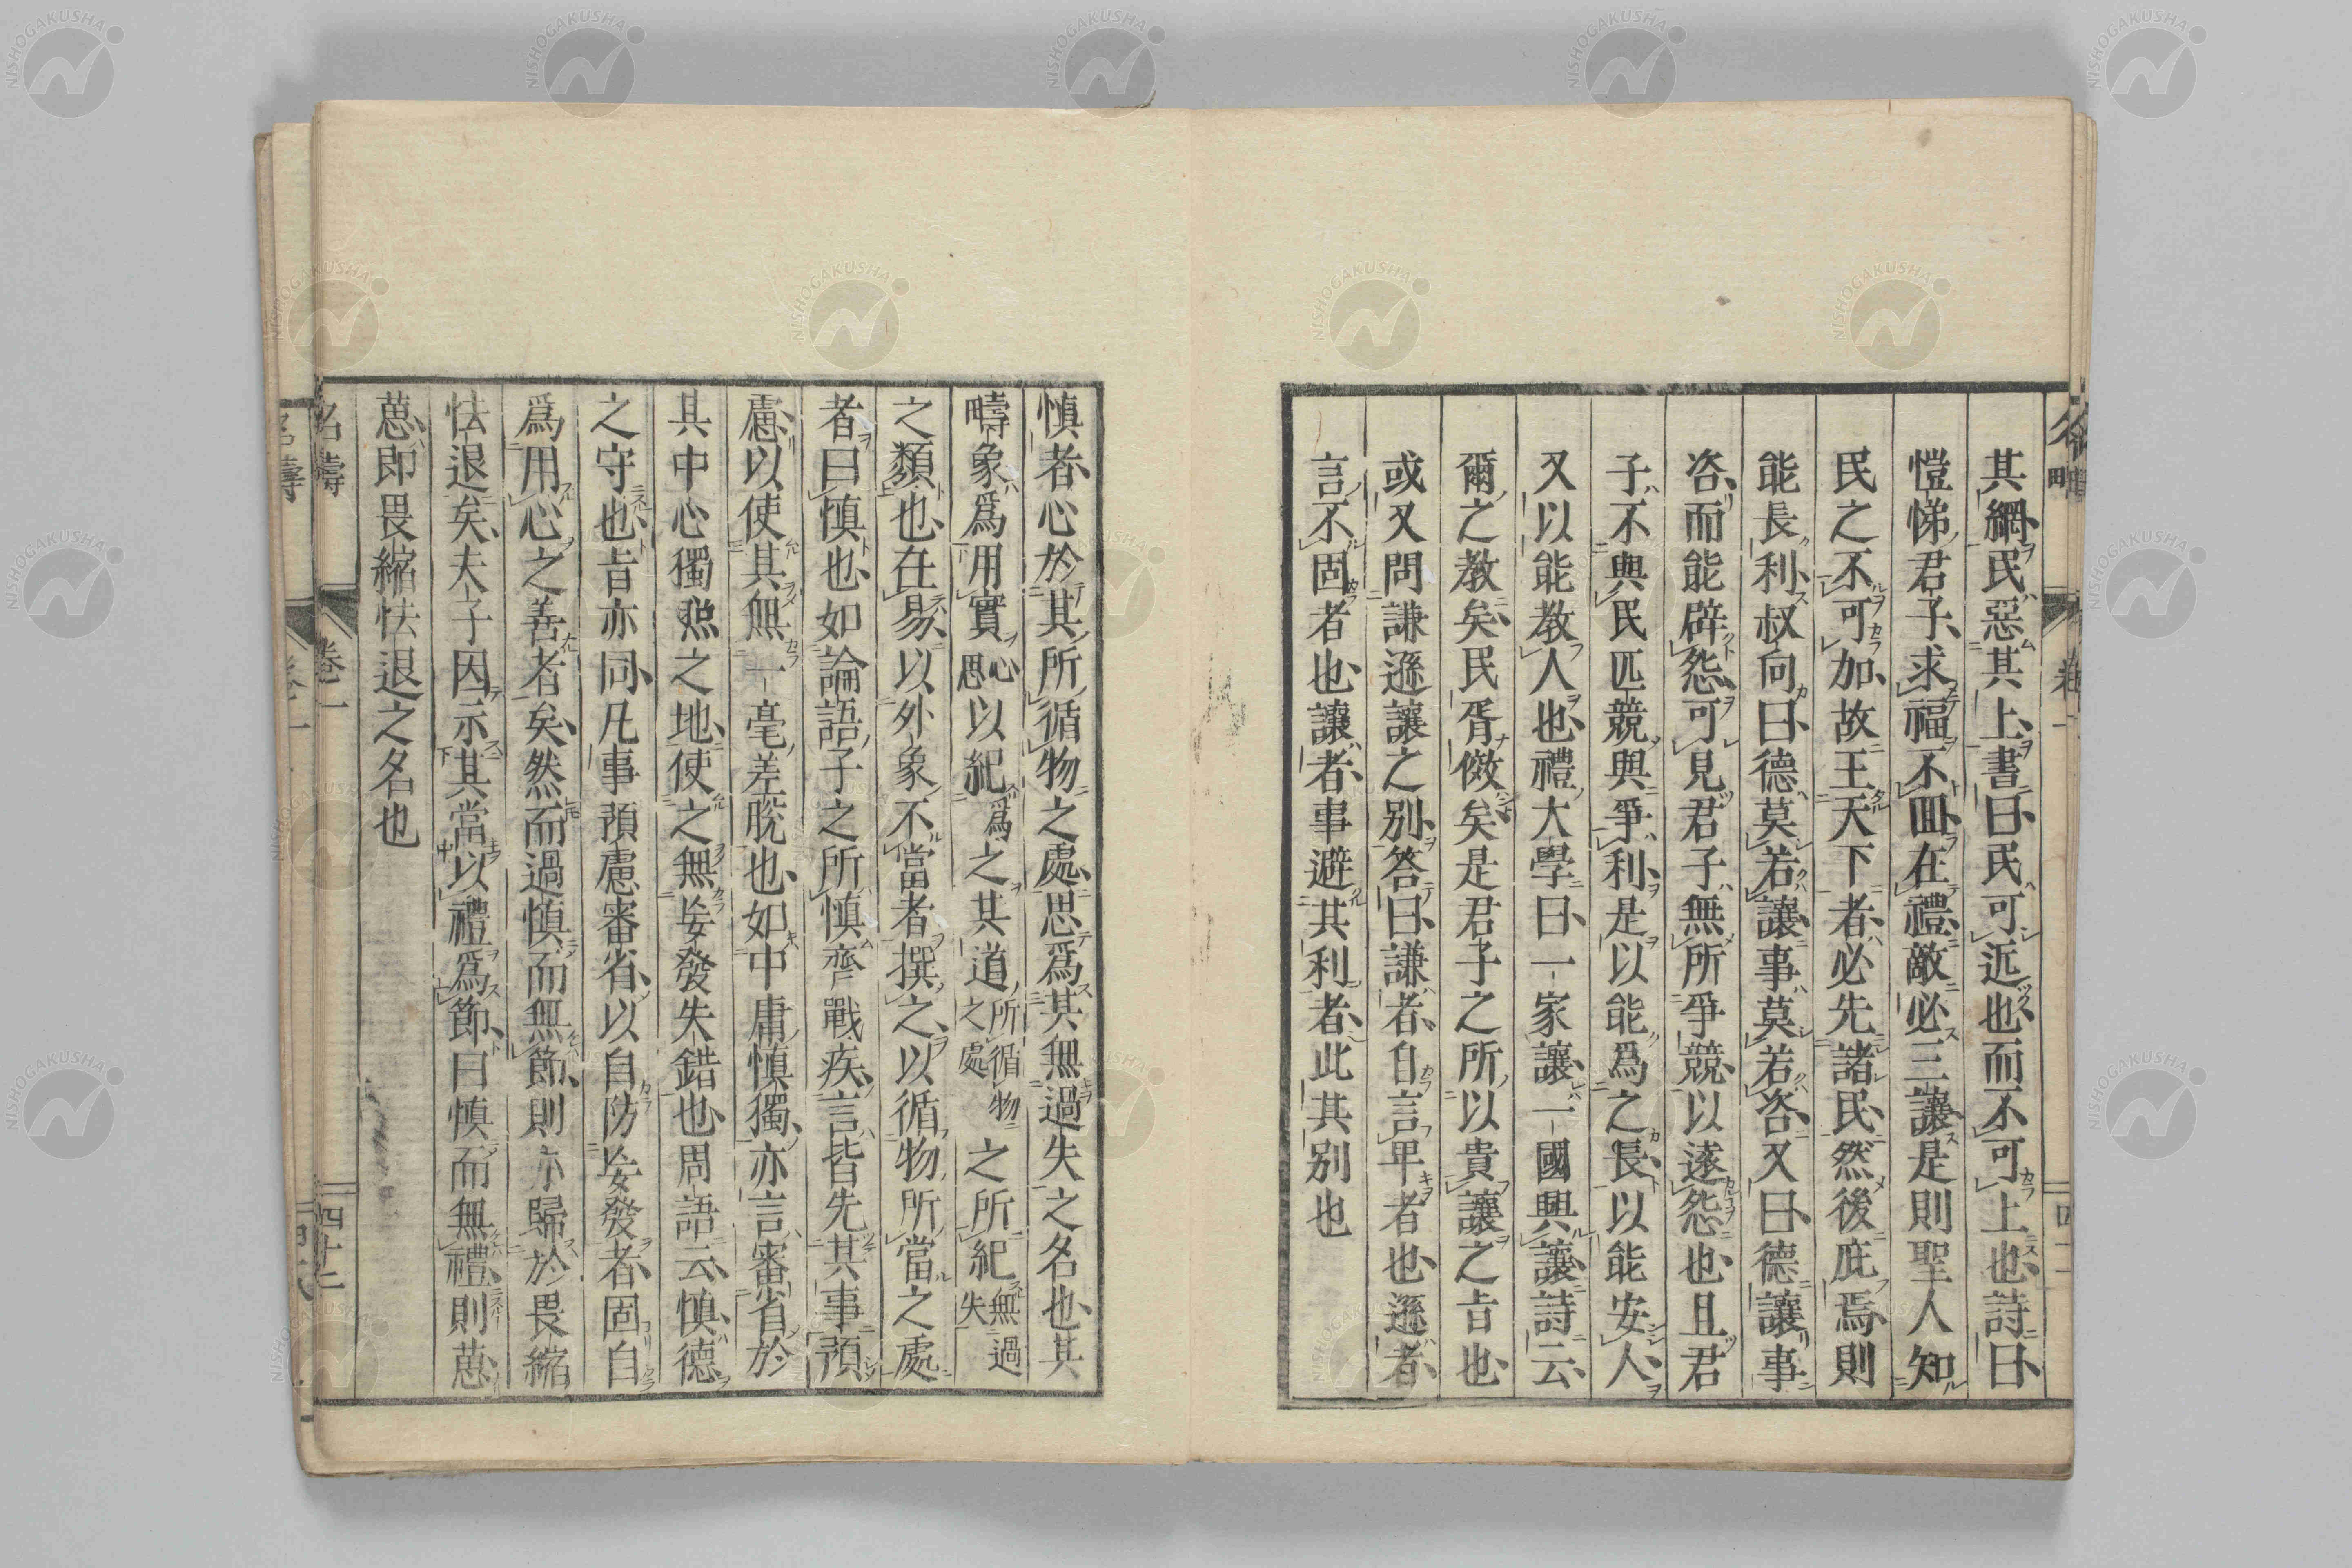 其網民惡其上書曰民可近也而不可上也詩曰
愷悌君子求福不回在禮敵必三讓是則聖人知
民之不可加故王天下者必先諸民然後庇焉則
能長利叔向曰德莫若讓事莫若咨又曰德讓事
咨而能辟怨可見君子無所爭競以遂怨也且君
子不與民匹競與爭利是以能爲之長以能安人
又以能教人也禮大學曰一家讓一國興讓詩云
爾之教矣民胥傚矣是君子之所以貴讓之旨也
或又問謙遜讓之別答曰謙者自言卑者也遜者
言不固者也讓者事避其利者此其別也
慎者心於其所循物之處思爲其無過失之名也其
疇象爲用實心思以紀爲之其道所循物之處之所紀無過失
之類也在易以外象不當者撰之以循物所當之處
者曰慎也如論語子之所慎齊戰疾言皆先其事預
慮以使其無一毫差脫也如中庸慎獨亦言審省於
其中心獨㷖之地使之無妄發失錯也周語云慎德
之守也旨亦同凡事預慮審省以自防妄發者固自
爲用心之善者矣然而過慎而無節則亦歸於畏縮
怯退矣夫子因示其當以禮爲節曰慎而無禮則葸
葸即畏縮怯退之名也
名疇
卷一
四十二
NISHOGAKUSHA